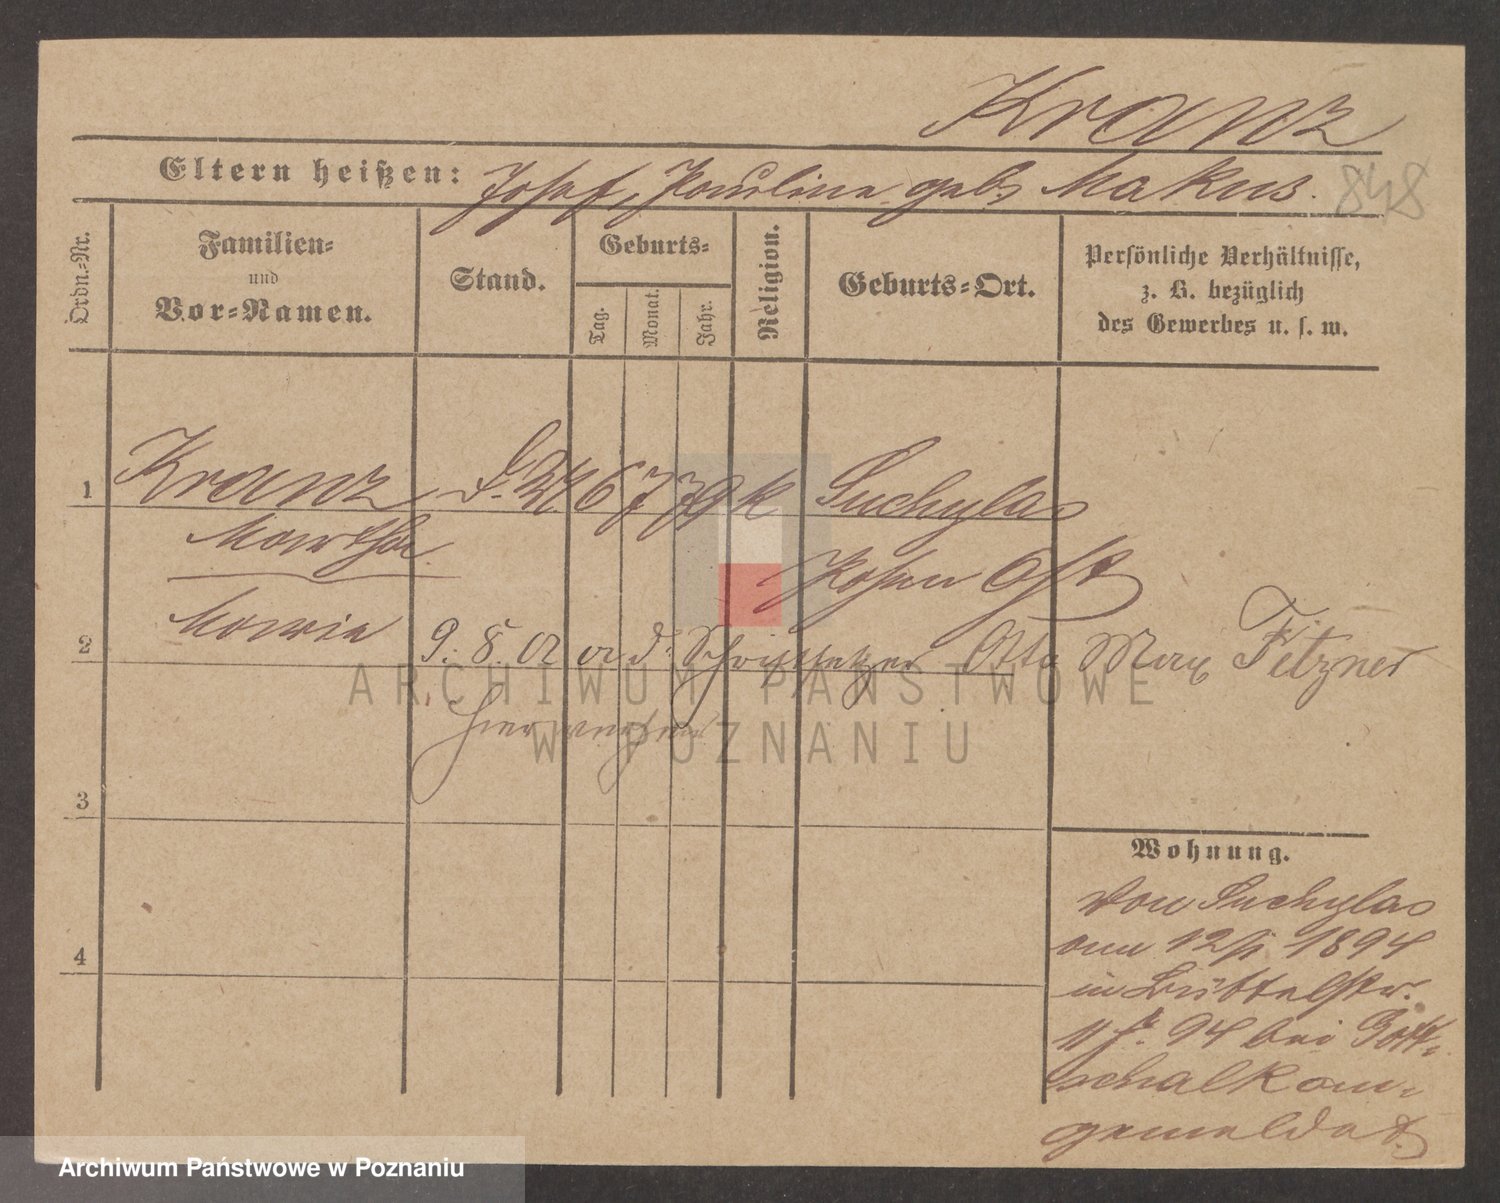 Kranz
Eltern heißen: Josef, Pauline geb. Makus.
848
Ordn.-Nr.
Familien-
und
Vor-Namen.
Stand.
Geburts-
Tag.
Monat.
Jahr.
Religion.
Geburts-Ort.
Persönliche Verhältnisse,
z. B. bezüglich
des Gewerbes u. s. w.
1 Kranz 6 7 79 k Suchylas
Martha Posen Ost
2 Maria 9. 8. 02 a d. Schriftsetzer Otto Max Fitzner
hier
3
4
Wohnung.
Von Suchylas
am 12/1 1894
in Büttelstr.
11 94 bei Gott-
schalk an-
gemeldet.
ARCHIWUM PAŃSTWOWE
W POZNANIU
Archiwum Państwowe w Poznaniu